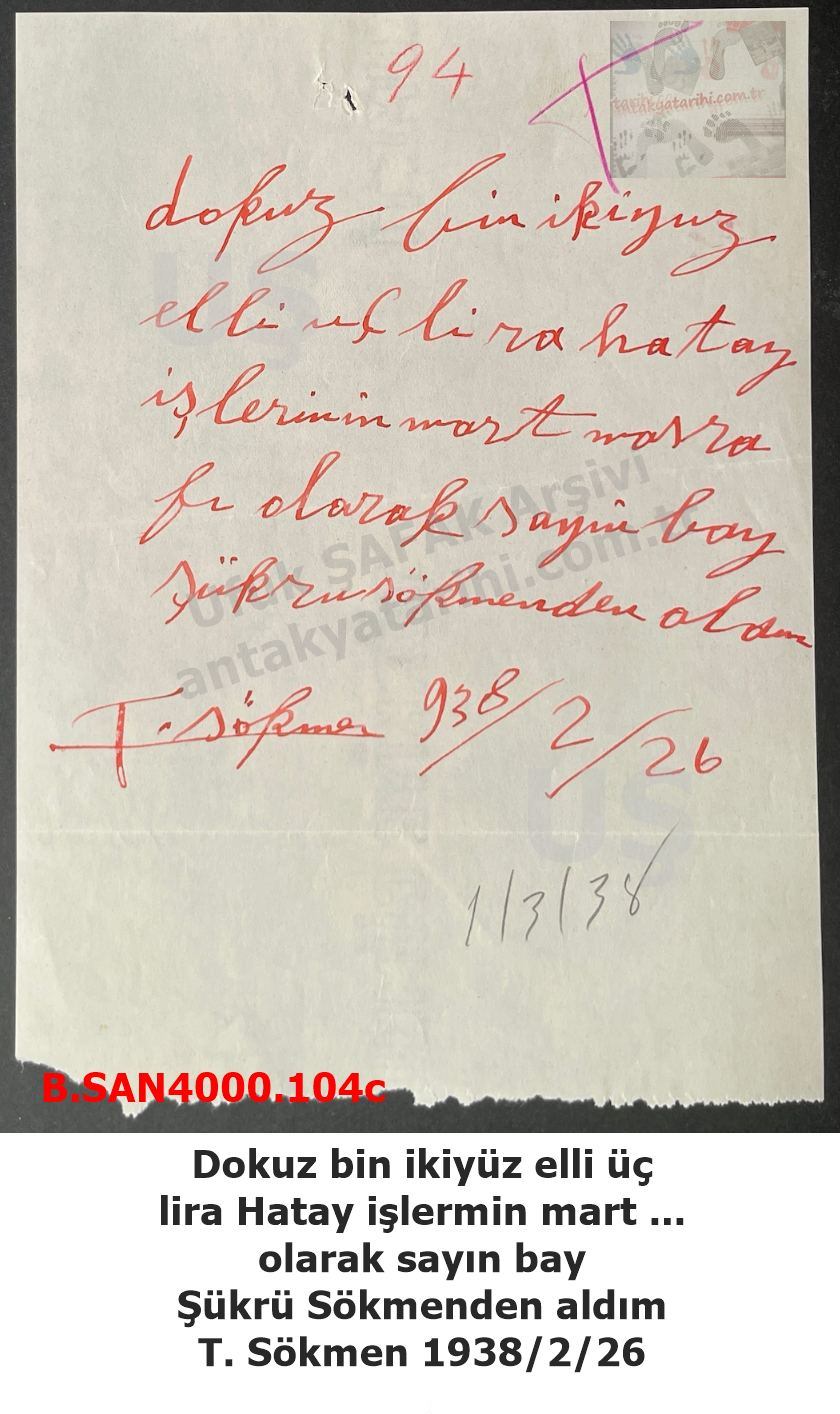 94
tarik
antakyatarihi.com.tr
dokuz bin ikiyuz
elli uç lira hatay
işlerinin mart masra
fı olarak sayın bay
şükrü sökmenden aldım
T. sökmen 938/2/26
1/3/38
UŞ
Ufuk ŞAFAK Arşivi
antakyatarihi.com.tr
UŞ
B.SAN4000.104c
Dokuz bin ikiyüz elli üç
lira Hatay işlermin mart ...
olarak sayın bay
Şükrü Sökmenden aldım
T. Sökmen 1938/2/26